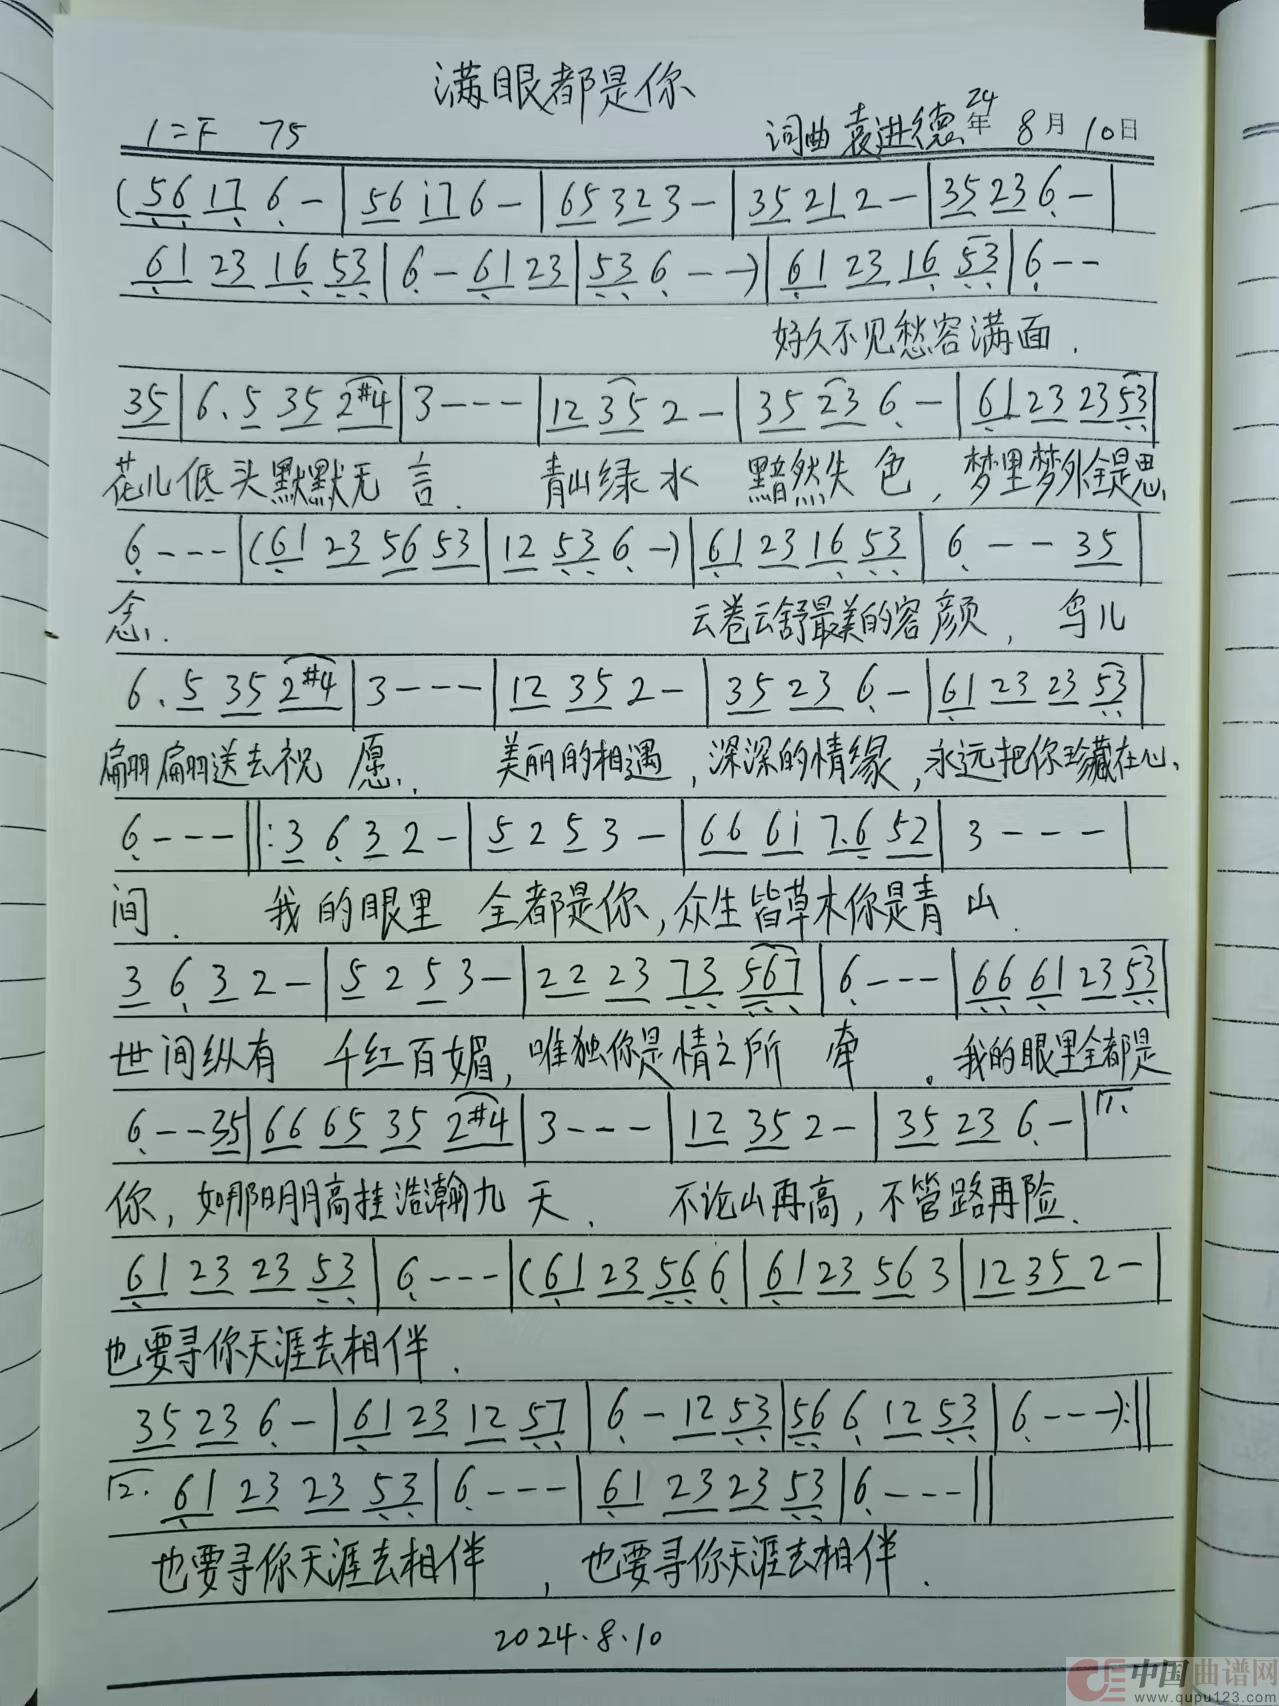 满眼都是你
1=F 75 词曲 袁进德 24年 8月10日
(56 17 6 - | 56 i7 6 - | 65 32 3 - | 35 21 2 - | 35 23 6 - |
61 23 16 53 | 6 - 61 23 | 53 6 - -) | 61 23 16 53 | 6 - -
好久不见愁容满面.
35 | 6. 5 35 2#4 | 3 - - - | 12 35 2 - | 35 23 6 - | 61 23 23 53 |
花儿低头默默无言. 青山绿水 黯然失色, 梦里梦外全是思
6 - - - | (61 23 56 53 | 12 53 6 -) | 61 23 16 53 | 6 - - 35 |
念. 云卷云舒最美的容颜, 鸟儿
6. 5 35 2#4 | 3 - - - | 12 35 2 - | 35 23 6 - | 61 23 23 53 |
翩翩送去祝愿. 美丽的相遇, 深深的情缘, 永远把你珍藏在心
6 - - - ||: 3 6 3 2 - | 5 2 5 3 - | 66 6i 7.6 52 | 3 - - - |
间. 我的眼里 全都是你, 众生皆草木你是青山.
3 6 3 2 - | 5 2 5 3 - | 22 23 73 567 | 6 - - - | 66 61 23 53 |
世间纵有 千红百媚, 唯独你是情之所牵. 我的眼里全都是
6 - - 35 | 66 65 35 2#4 | 3 - - - | 12 35 2 - | 35 23 6 - | 1.
你, 如那明月高挂浩瀚九天. 不论山再高, 不管路再险.
61 23 23 53 | 6 - - - | (61 23 56 6 | 61 23 56 3 | 12 35 2 - |
也要寻你天涯去相伴.
35 23 6 - | 61 23 12 57 | 6 - 12 53 | 56 6 12 53 | 6 - - -) :||
2. 61 23 23 53 | 6 - - - | 61 23 23 53 | 6 - - - ||
也要寻你天涯去相伴, 也要寻你天涯去相伴.
2024.8.10
中国曲谱网
www.qupu123.com